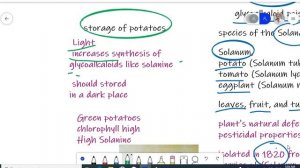 storage of potatoes
Light
increases synthesis of
glycoalkaloids like solanine
should stored
in a dark place
Green potatoes
chlorophyll high
High Solanine
species of the
Solanum
potato (Solanum
tomato (Solanum
eggplant (Solanum
leaves, fruit, and
plant's natural
pesticidal
in 1820